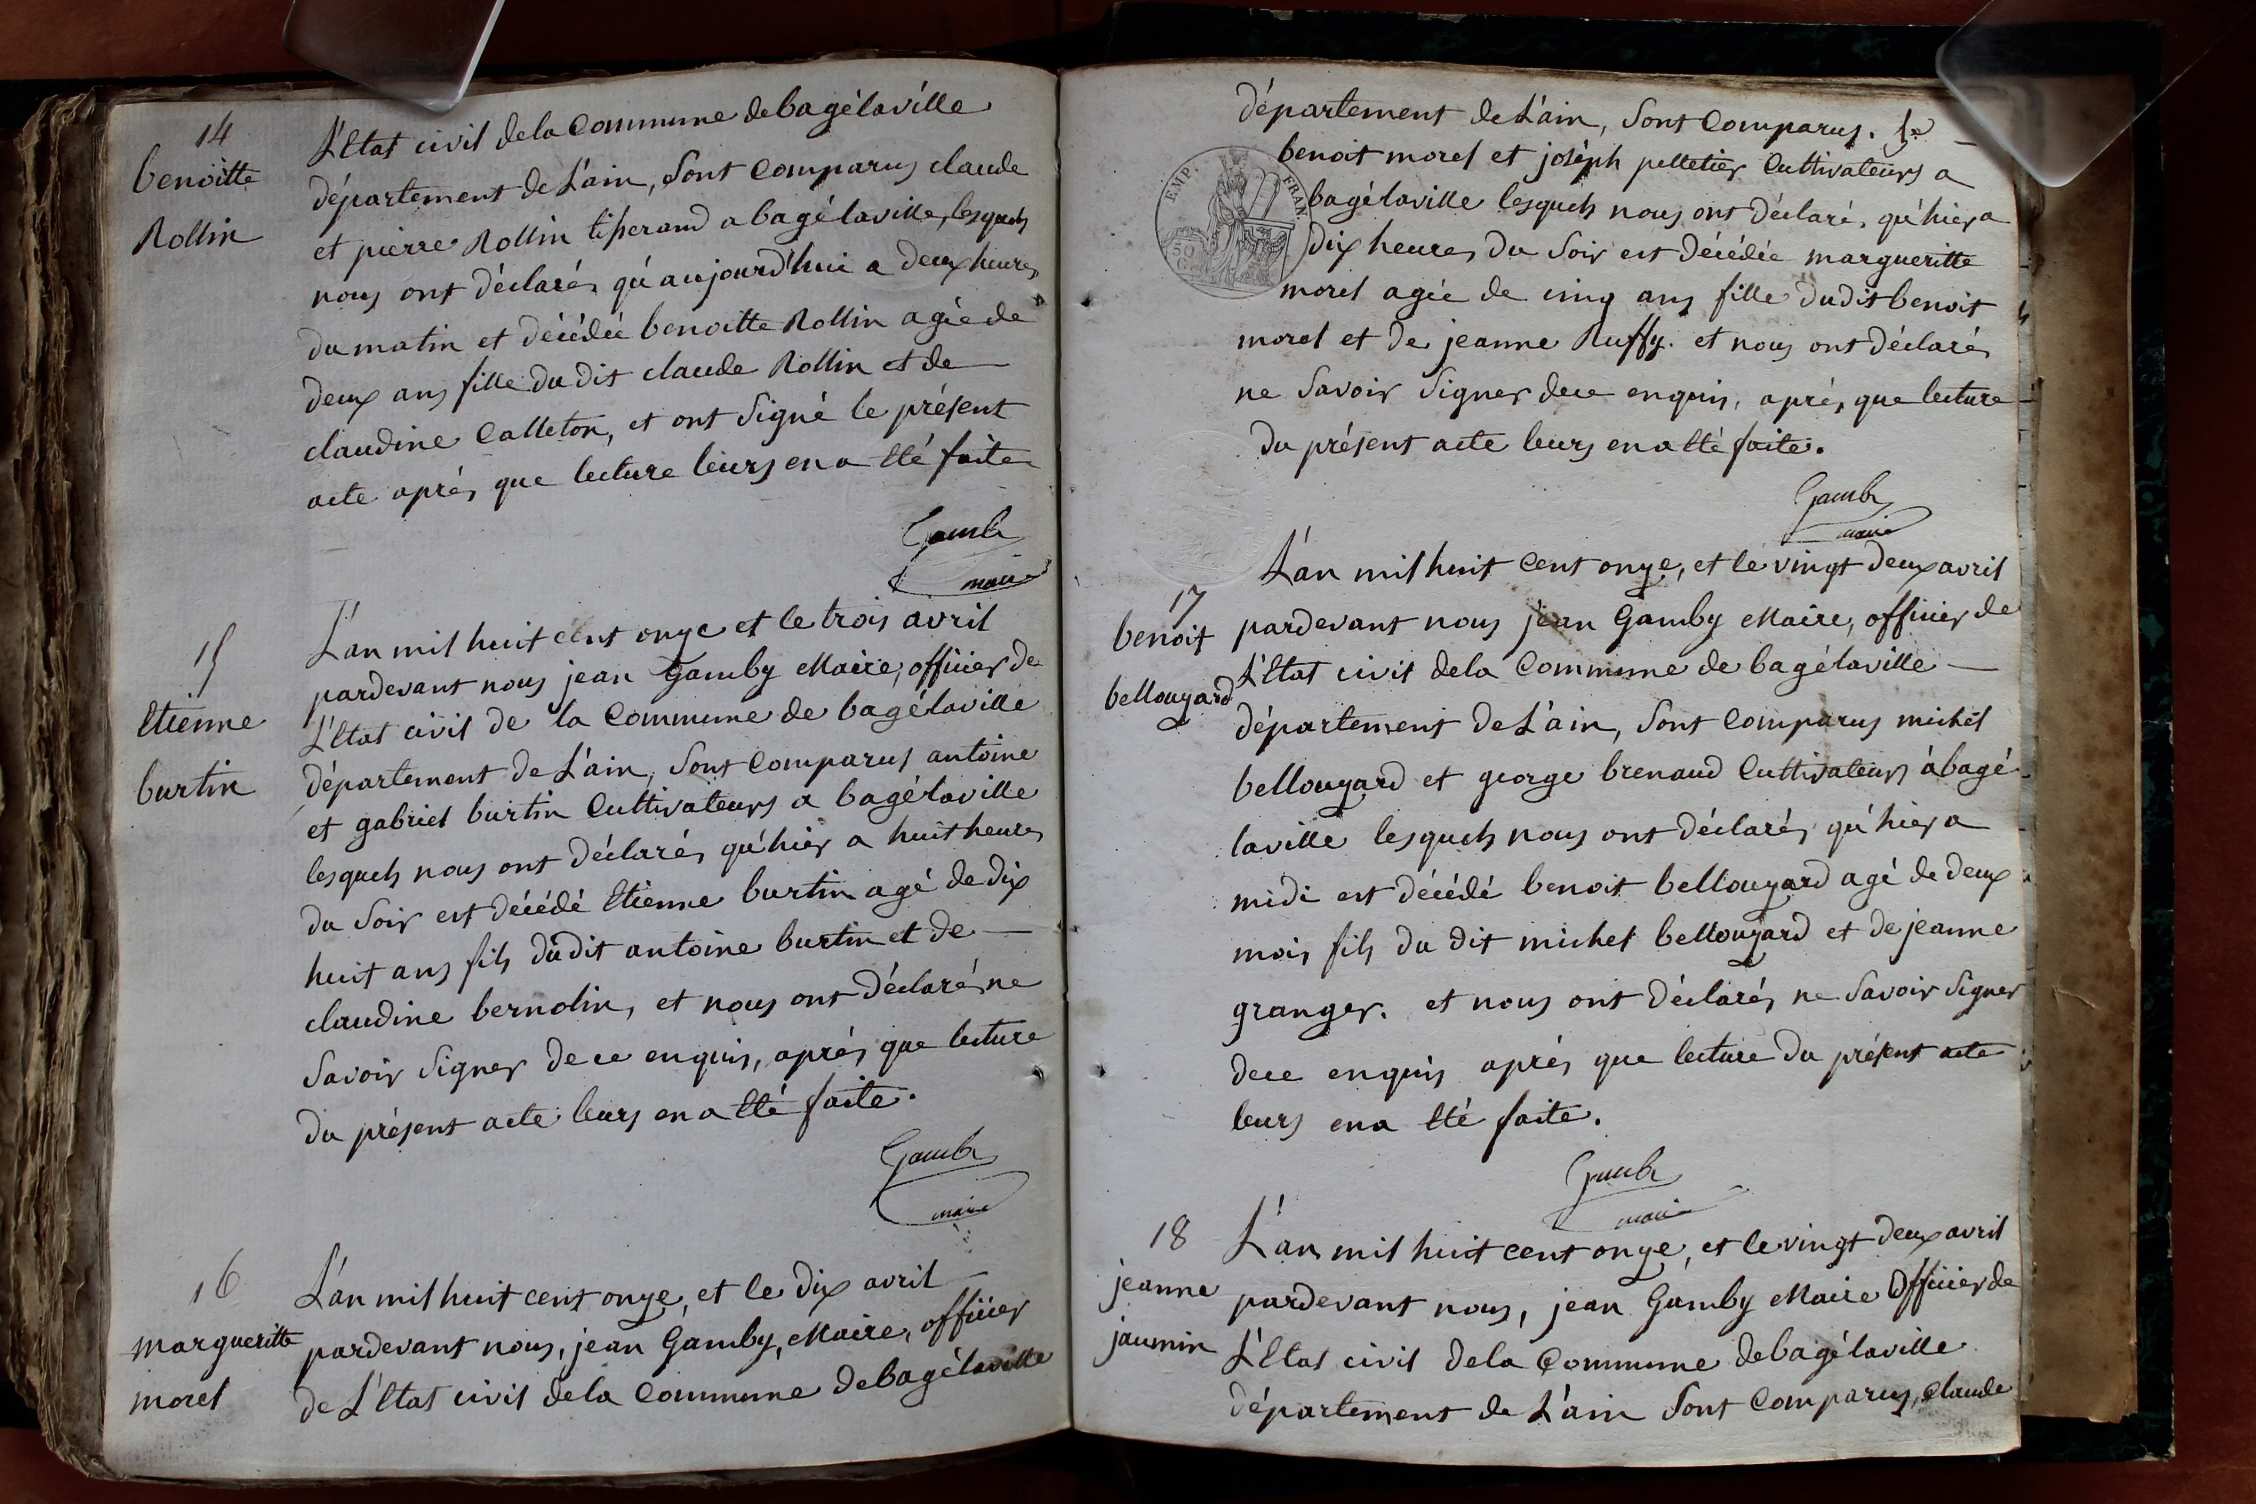 14
benoitte
Rollin
L'Etat civil de la Commune de bagélaville
département de L'ain, sont comparus claude
et pierre Rollin tisserand a bagé laville, lesquels
nous ont déclarés qu'aujourd'hui a deux heures
du matin et décédée benoitte Rollin agée de
deux ans fille du dit claude Rollin et de
claudine Calleton, et ont signé le présent
acte aprés que lecture leurs en a Eté faite
Gamby
maire
15
Etienne
burtin
L'an mil huit cent onze et le trois avril
pardevant nous jean Gamby Maire, officier de
L'Etat civil de la Commune de bagélaville
département de L'ain, sont comparus antoine
et gabriel burtin Cultivateurs a bagélaville
lesquels nous ont déclarés qu'hier a huit heures
du soir est décédé Etienne burtin agé de dix
huit ans fils dudit antoine burtin et de
claudine bernolin, et nous ont déclarés ne
savoir signer de ce enquis, aprés que lecture
du présent acte leurs en a Eté faite.
Gamby
maire
16
margueritte
morel
L'an mil huit cent onze, et le dix avril
pardevant nous, jean Gamby, Maire, officier
de L'Etat civil de la Commune de bagélaville
département de L'ain, sont comparus.
EMP. FRAN.
50
benoit morel et joseph pelletier Cultivateurs a
bagélaville lesquels nous ont déclaré, qu'hier a
dix heures du soir est décédée margueritte
morel agée de cinq ans fille dudit benoit
morel et de jeanne Ruffy. et nous ont déclarés
ne savoir signer dece enquis, aprés que lecture
du présent acte leurs en a Eté faite.
Gamby
maire
17
benoit
bellouzard
L'an mil huit cent onze, et le vingt deux avril
pardevant nous jean Gamby Maire, officier de
L'Etat civil dela Commune de bagélaville
département de L'ain, sont comparus michel
bellouzard et george brenaud Cultivateurs à bagé
laville lesquels nous ont déclarés qu'hier a
midi est décédé benoit bellouzard agé de deux
mois fils du dit michel bellouzard et de jeanne
granger. et nous ont déclarés ne savoir signer
dece enquis aprés que lecture du présent acte
leurs en a Eté faite.
Gamby
maire
18
jeanne
jaumin
L'an mil huit cent onze, et le vingt deux avril
pardevant nous, jean Gamby Maire officier de
L'Etat civil dela Commune debagélaville
département de L'ain sont comparus, claude